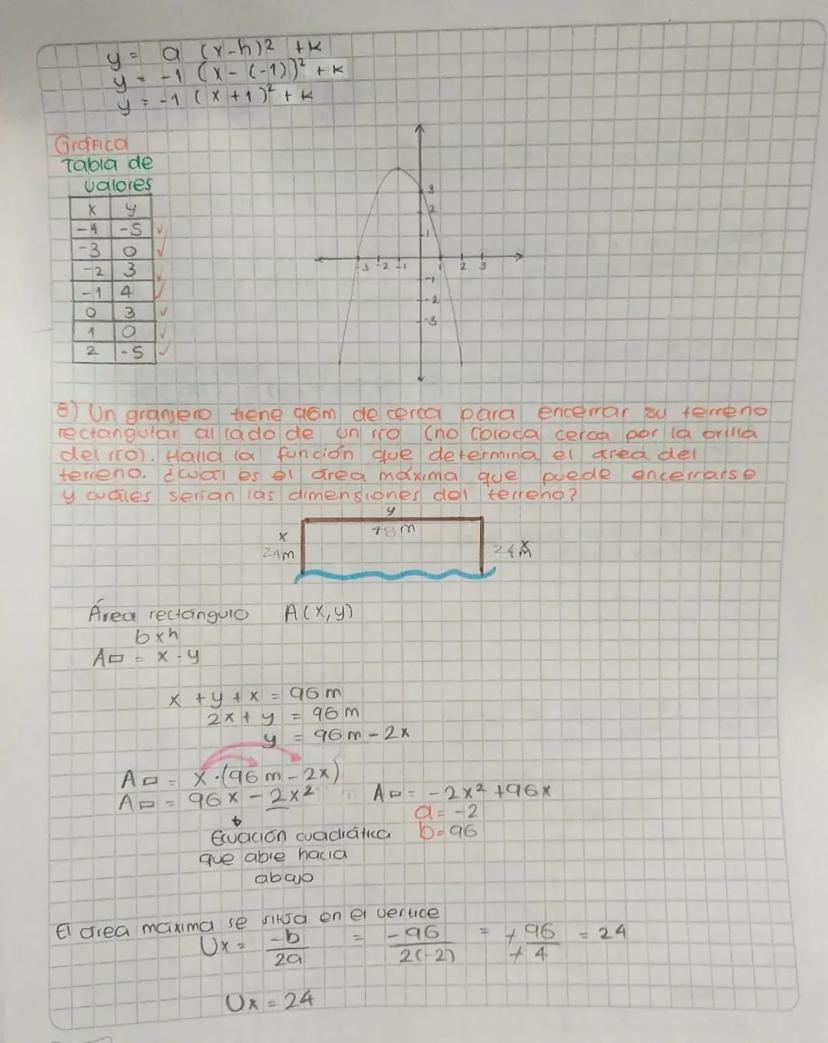 y = a (x-h)² + k
y = -1 (x - (-1))² + k
y = -1 (x + 1)² + k
Gráfica
Tabla de
valores
x y
-4 -5
-3 0
-2 3
-1 4
0 3
1 0
2 -5
3
2
1
-3 -2 -1 1 2 3
-1
-2
-3
8) Un granjero tiene 96m de cerca para encerrar su terreno
rectangular al lado de un río (no coloca cerca por la orilla
del río). Halla la función que determina el área del
terreno. ¿Cuál es el área máxima que puede encerrarse
y cuáles serían las dimensiones del terreno?
y
x 48 m x
24m 24m
Área rectángulo A(x,y)
b x h
A▭ = x · y
x + y + x = 96m
2x + y = 96m
y = 96m - 2x
A▭ = x · (96m - 2x)
A▭ = 96x - 2x² A▭ = -2x² + 96x
a = -2
Ecuación cuadrática b = 96
que abre hacia
abajo
El área máxima se sitúa en el vertice
Ux = -b/2a = -96/2(-2) = +96/+4 = 24
Ux = 24